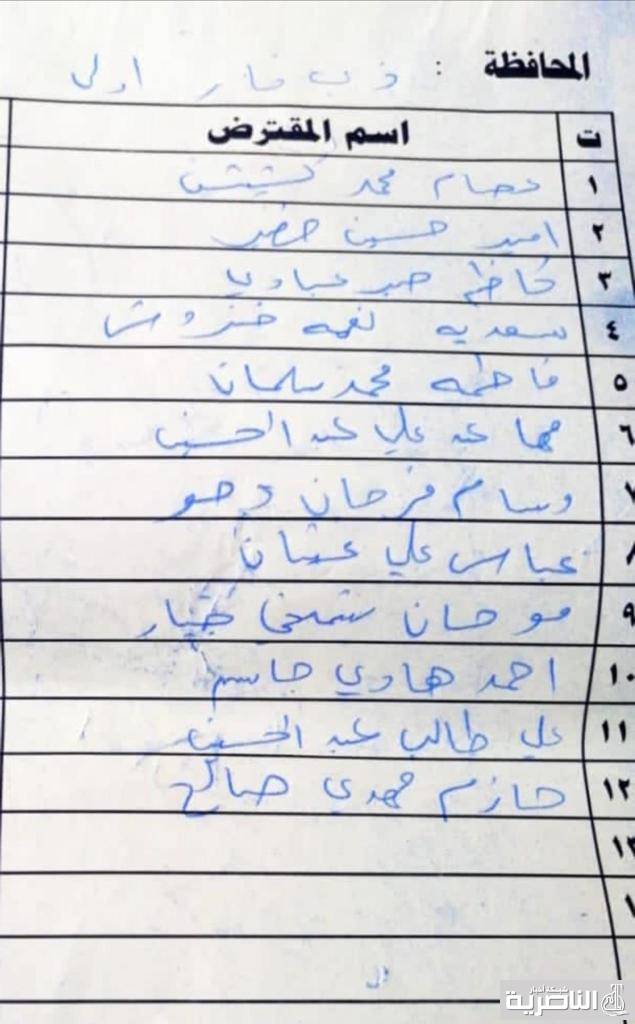 المحافظة : ذي قار اولى
ت اسم المقترض
١ عصام محمد
٢ امير حسين خضير
٣ كاظم جبر عبادي
٤ سعديه نعمه خنزوش
٥ فاطمه محمد سلمان
٦ مها عبد علي عبد الحسين
٧ وسام فرحان
٨ عباس علي
٩ موحان شمخي جبار
١٠ احمد هادي جاسم
١١ علي طالب عبد الحسين
١٢ حازم مهدي صالح
١٣
شبكة اخبار
الناصرية